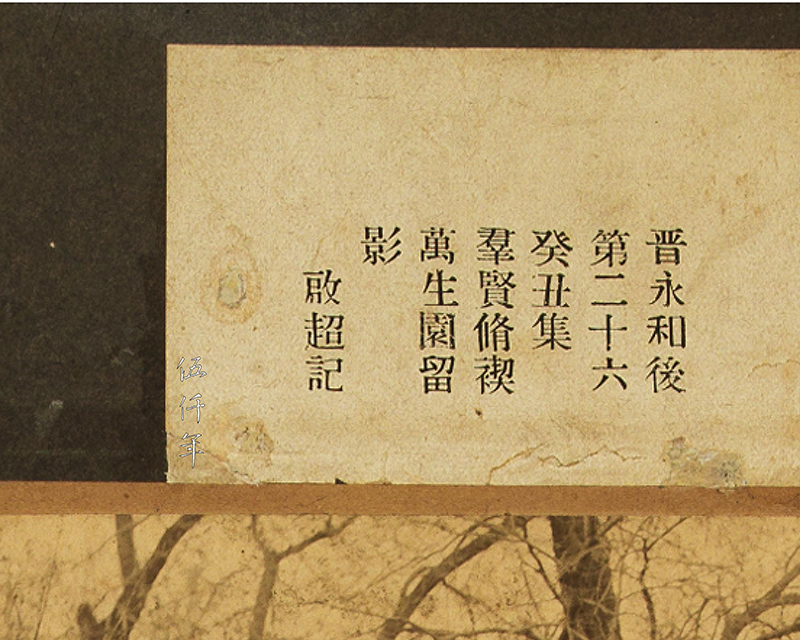 晋永和後
第二十六
癸丑集
羣賢脩禊
萬生園留
影
啟超記
伍仟年